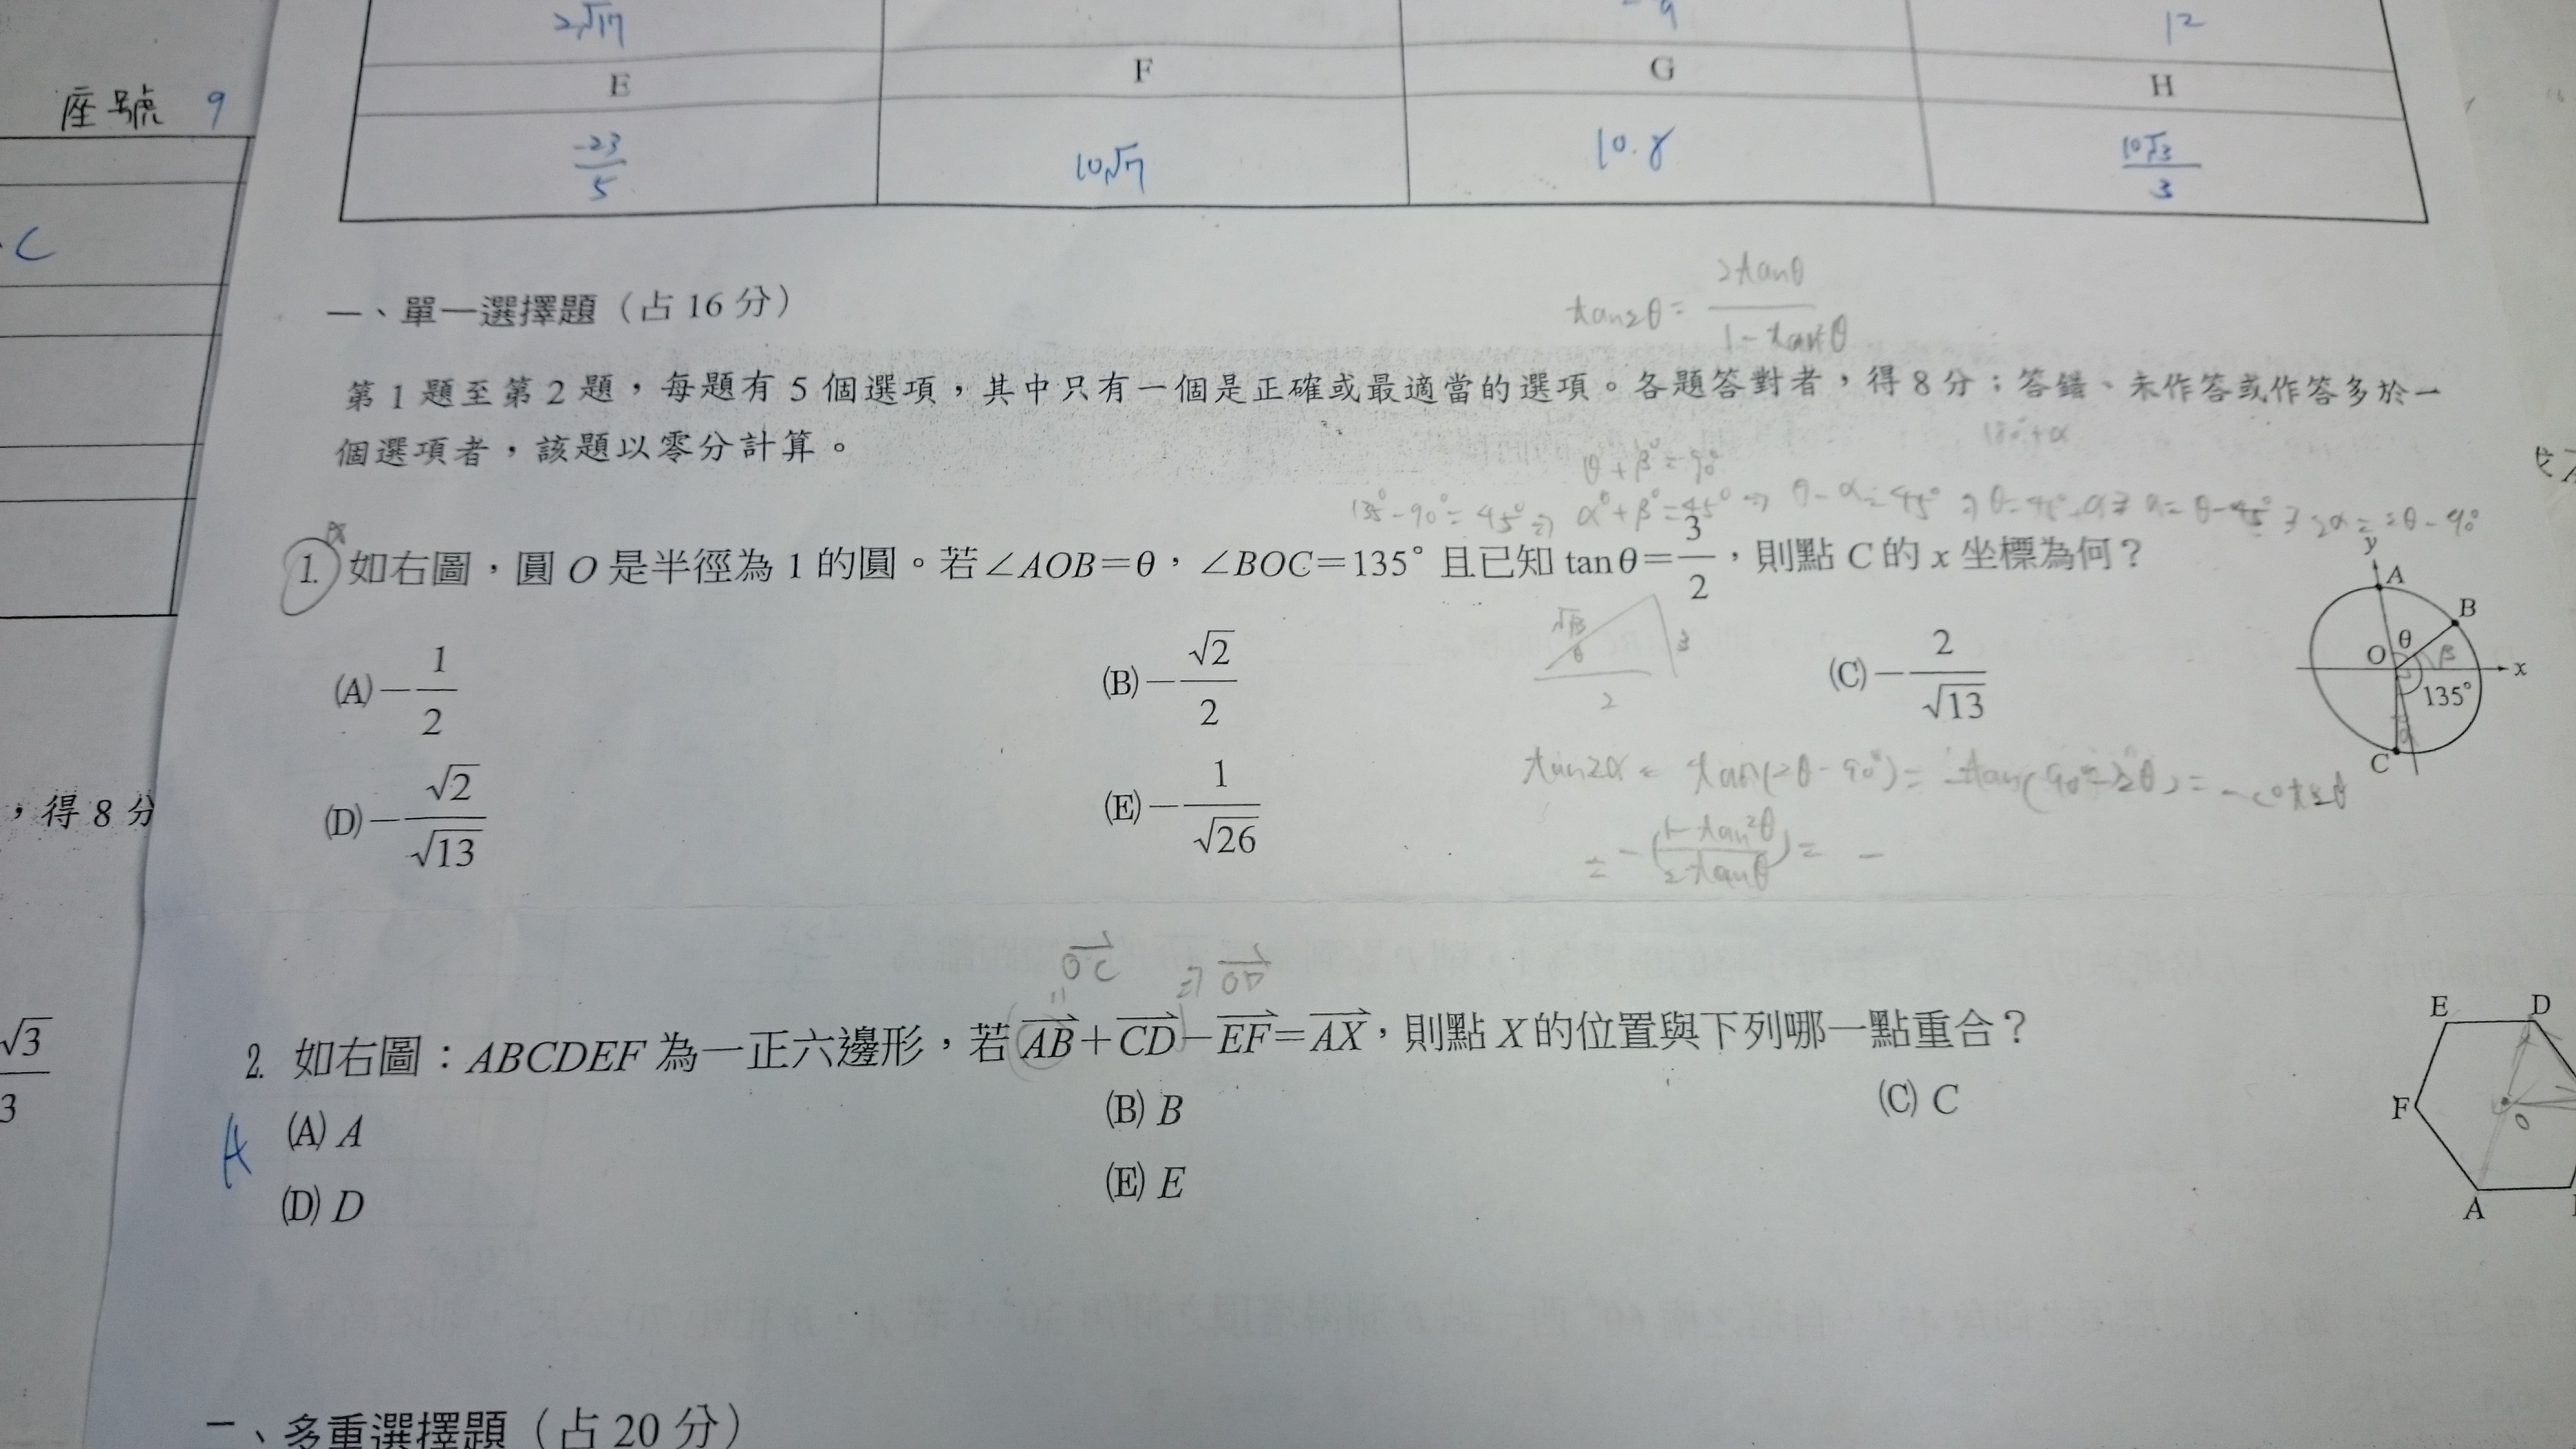 2√17
12
座號 9
E F G H
-23/5 10√7 10.8 10√3/3
C
一、單一選擇題（占 16 分）
tan2θ = 2tanθ/1-tan²θ
第 1 題至第 2 題，每題有 5 個選項，其中只有一個是正確或最適當的選項。各題答對者，得 8 分；答錯、未作答或作答多於一
個選項者，該題以零分計算。
180°+α
θ+β°=90°
135°-90°=45° ⇒ α°+β°=45° ⇒ θ-α=45° ⇒ θ=45°+α ⇒ α=θ-45° ⇒ 2α=2θ-90°
1. 如右圖，圓 O 是半徑為 1 的圓。若∠AOB=θ，∠BOC=135° 且已知 tanθ=3/2，則點 C 的 x 坐標為何？
y
A
B
O θ β
x
135°
α
C
√13
θ
3
2
(A) -1/2 (B) -√2/2 (C) -2/√13
(D) -√2/√13 (E) -1/√26
tan2α = tan(2θ-90°) = -tan(90°-2θ) = -cot2θ
= -(1-tan²θ/2tanθ) = -
，得 8 分
OC ⇒ OD
2. 如右圖：ABCDEF 為一正六邊形，若 AB+CD-EF=AX，則點 X 的位置與下列哪一點重合？
E D
F
O
A
√3/3
A
(A) A (B) B (C) C
(D) D (E) E
二、多重選擇題（占 20 分）